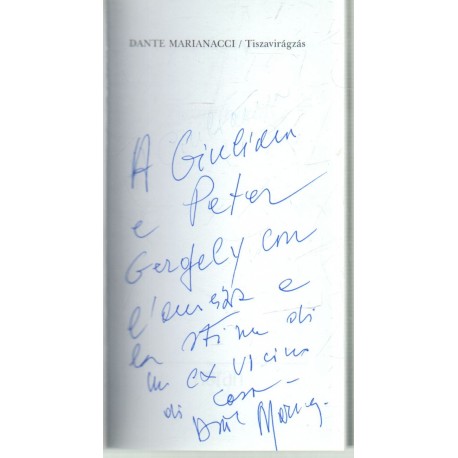 DANTE MARIANACCI / Tiszavirágzás
A Giuliana
e Peter
Gergely con
l'amicizia e
la stima di
un ex vicino
di casa –
Dante Marianacci